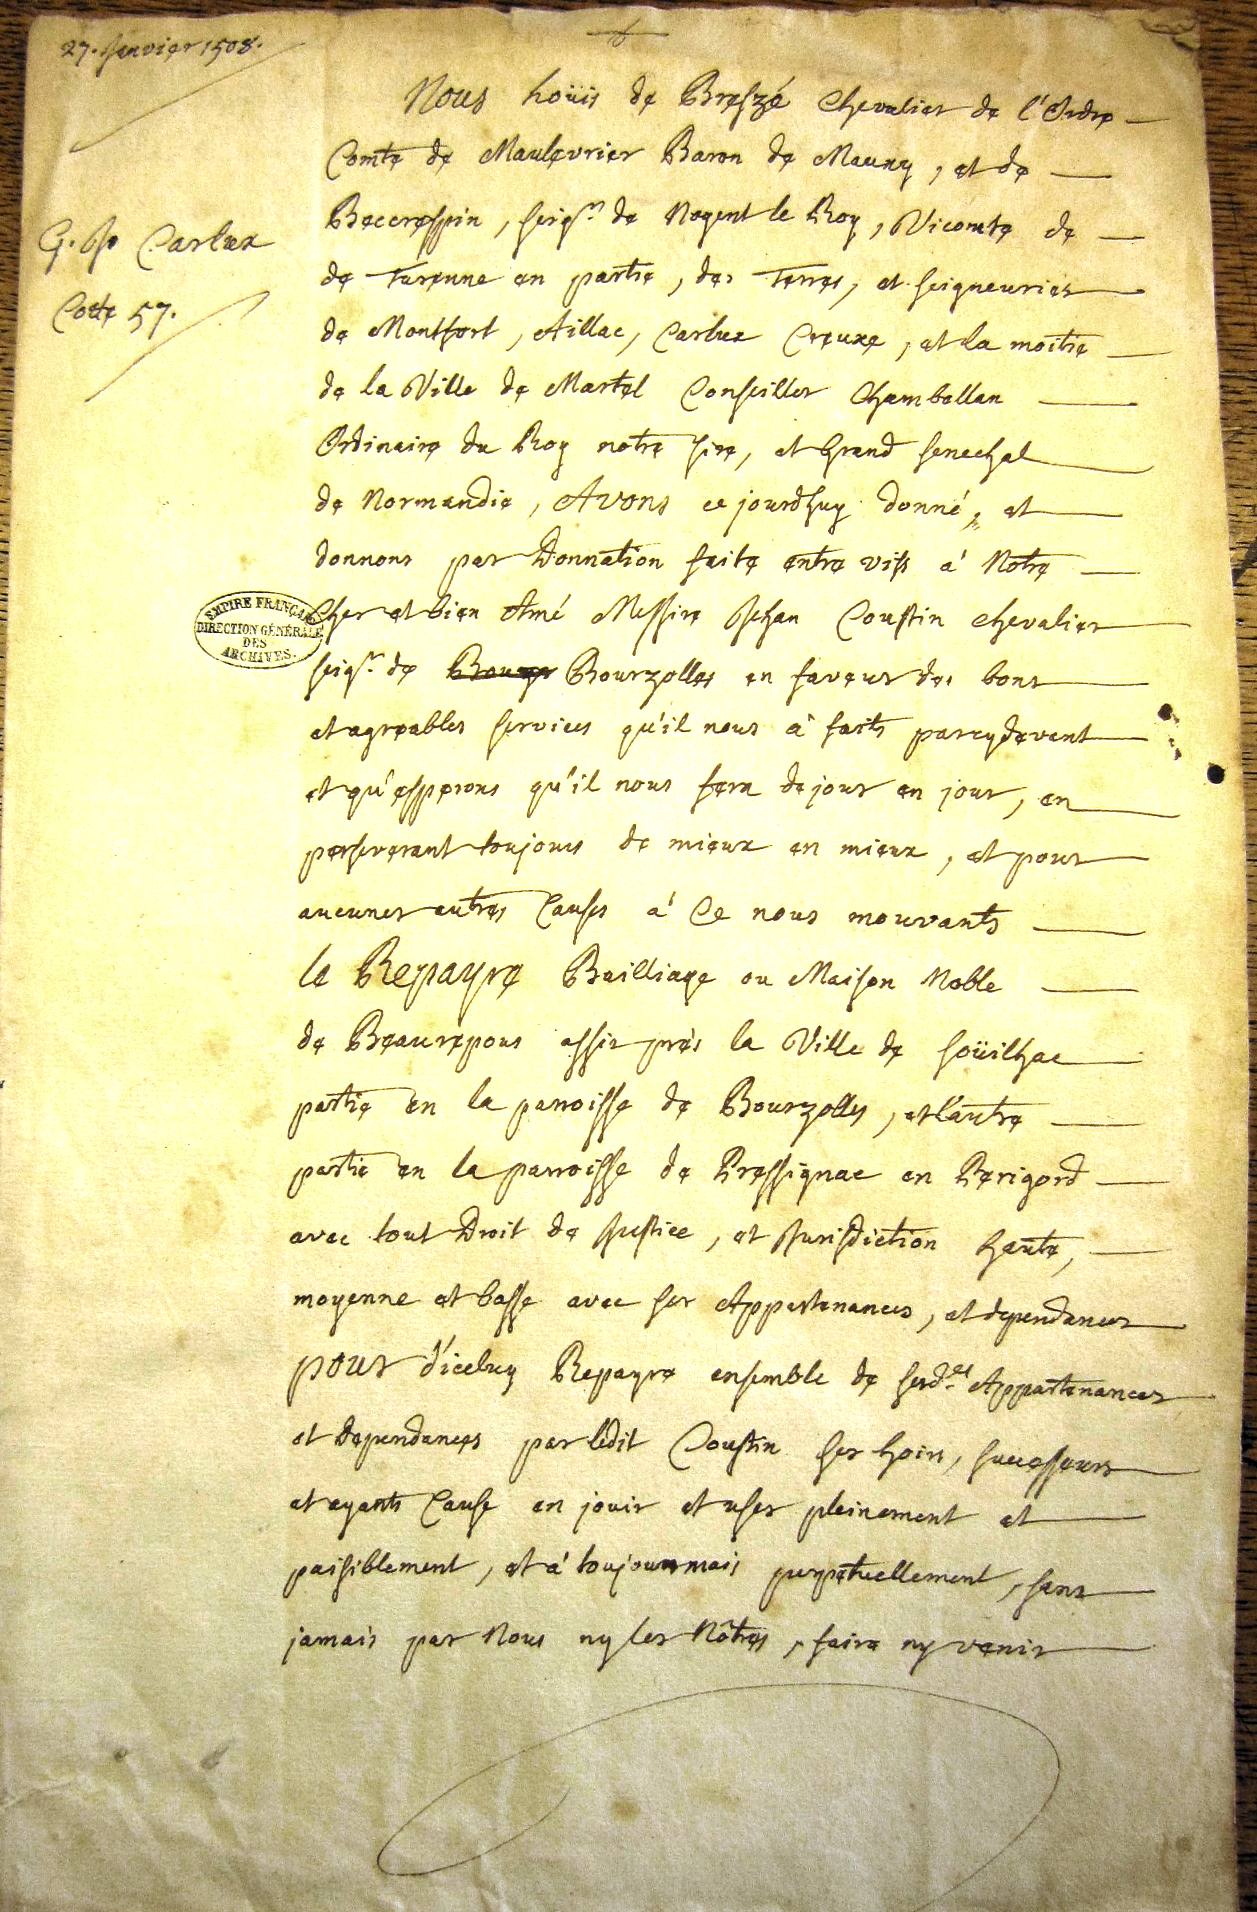 27. Janvier 1508.
Nous Loüis de Breszé Chevalier de l'Ordre
Comte de Maulevrier Baron de Mauny, et de
Beccrespin, seigr. de Nogent le Roy, Vicomte de
G. Carlux
de Turenne en partie, des Terres, et seigneuries
Cotte 57.
de Montfort, Aillac, Carlux Creuxe, et la moitie
de la Ville de Martel Conseiller Chambellan
Ordinaire du Roy notre sire, et Grand senechal
de Normandie, Avons ce jourdhuy donné, et
donnons par Donnation faite entre vifs a' Notre
EMPIRE FRANÇAIS
DIRECTION GÉNÉRALE
DES
ARCHIVES.
Cher et bien Amé Messire Jehan Coustin chevalier
seigr. de Bourzolles en faveur des bons
et agreables services qu'il nous a faits parcydevant
et qu'esperons qu'il nous fera de jour en jour, en
perseverant toujours de mieux en mieux, et pour
aucunes autres Causes a' Ce nous mouvants
le Repayre Bailliage ou Maison Noble
de Beaurepous assis prés la Ville de soüilhac
partie en la paroisse de Bourzolles, et l'autre
partie en la parroisse de Pressignac en Perigord
avec tout Droit de Justice, et Jurisdiction haute,
moyenne et basse avec ses Appartenances, et dependances
pour d'iceluy Repayre ensemble de sesd.es Appartenances
et Dependances par ledit Coustin ses hoirs, successeurs
et ayants Cause en jouir et user pleinement et
paisiblement, et a' toujourmais perpetuellement, sans
jamais par Nous ny les Nôtres, faire ny venir